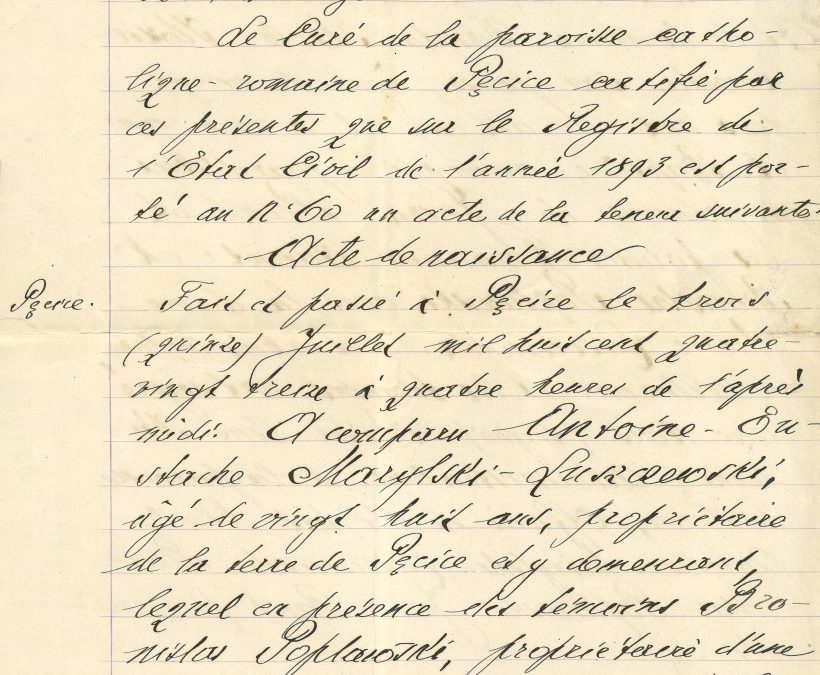 Le Curé de la paroisse catho-
lique-romaine de Pęcice certifie par
ces présentes que sur le Registre de
l'Etat Civil de l'année 1893 est por-
té au N° 60 un acte de la teneur suivante.
Acte de naissance
Pęcice. Fait et passé à Pęcice le trois
(quinze) Juillet mil huit cent quatre-
vingt treize à quatre heures de l'après
midi. A comparu Antoine-Eu-
stache Marylski-Łuszczewski,
âgé de vingt huit ans, propriétaire
de la terre de Pęcice et y demeurant,
lequel en présence des témoins Bro-
nislas Poplawski, propriétaire d'une